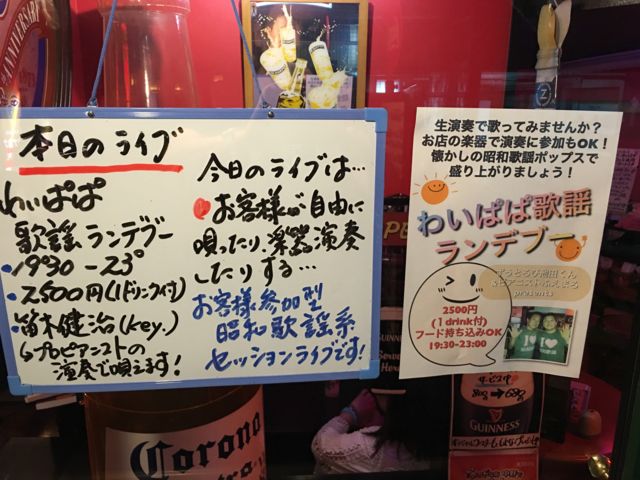 本日のライブ
わいぱぱ
歌謡ランデブー
・1930-23º
・2500円(1ドリンク付)
・笛木健治(key.)
プロピアニストの
演奏で唄えます!
今日のライブは…
お客様が自由に
唄ったり、楽器演奏
したりする…
お客様参加型
昭和歌謡系
セッションライブです!
生演奏で歌ってみませんか?
お店の楽器で演奏に参加もOK!
懐かしの昭和歌謡ポップスで
盛り上がりましょう!
わいぱぱ歌謡
ランデブー
presents
2500円
(1drink付)
フード持ち込みOK
19:30-23:00
I ♥
I ♥
ANNIVERSARY
Corona
GUINNESS
サービス中
GUINNESS